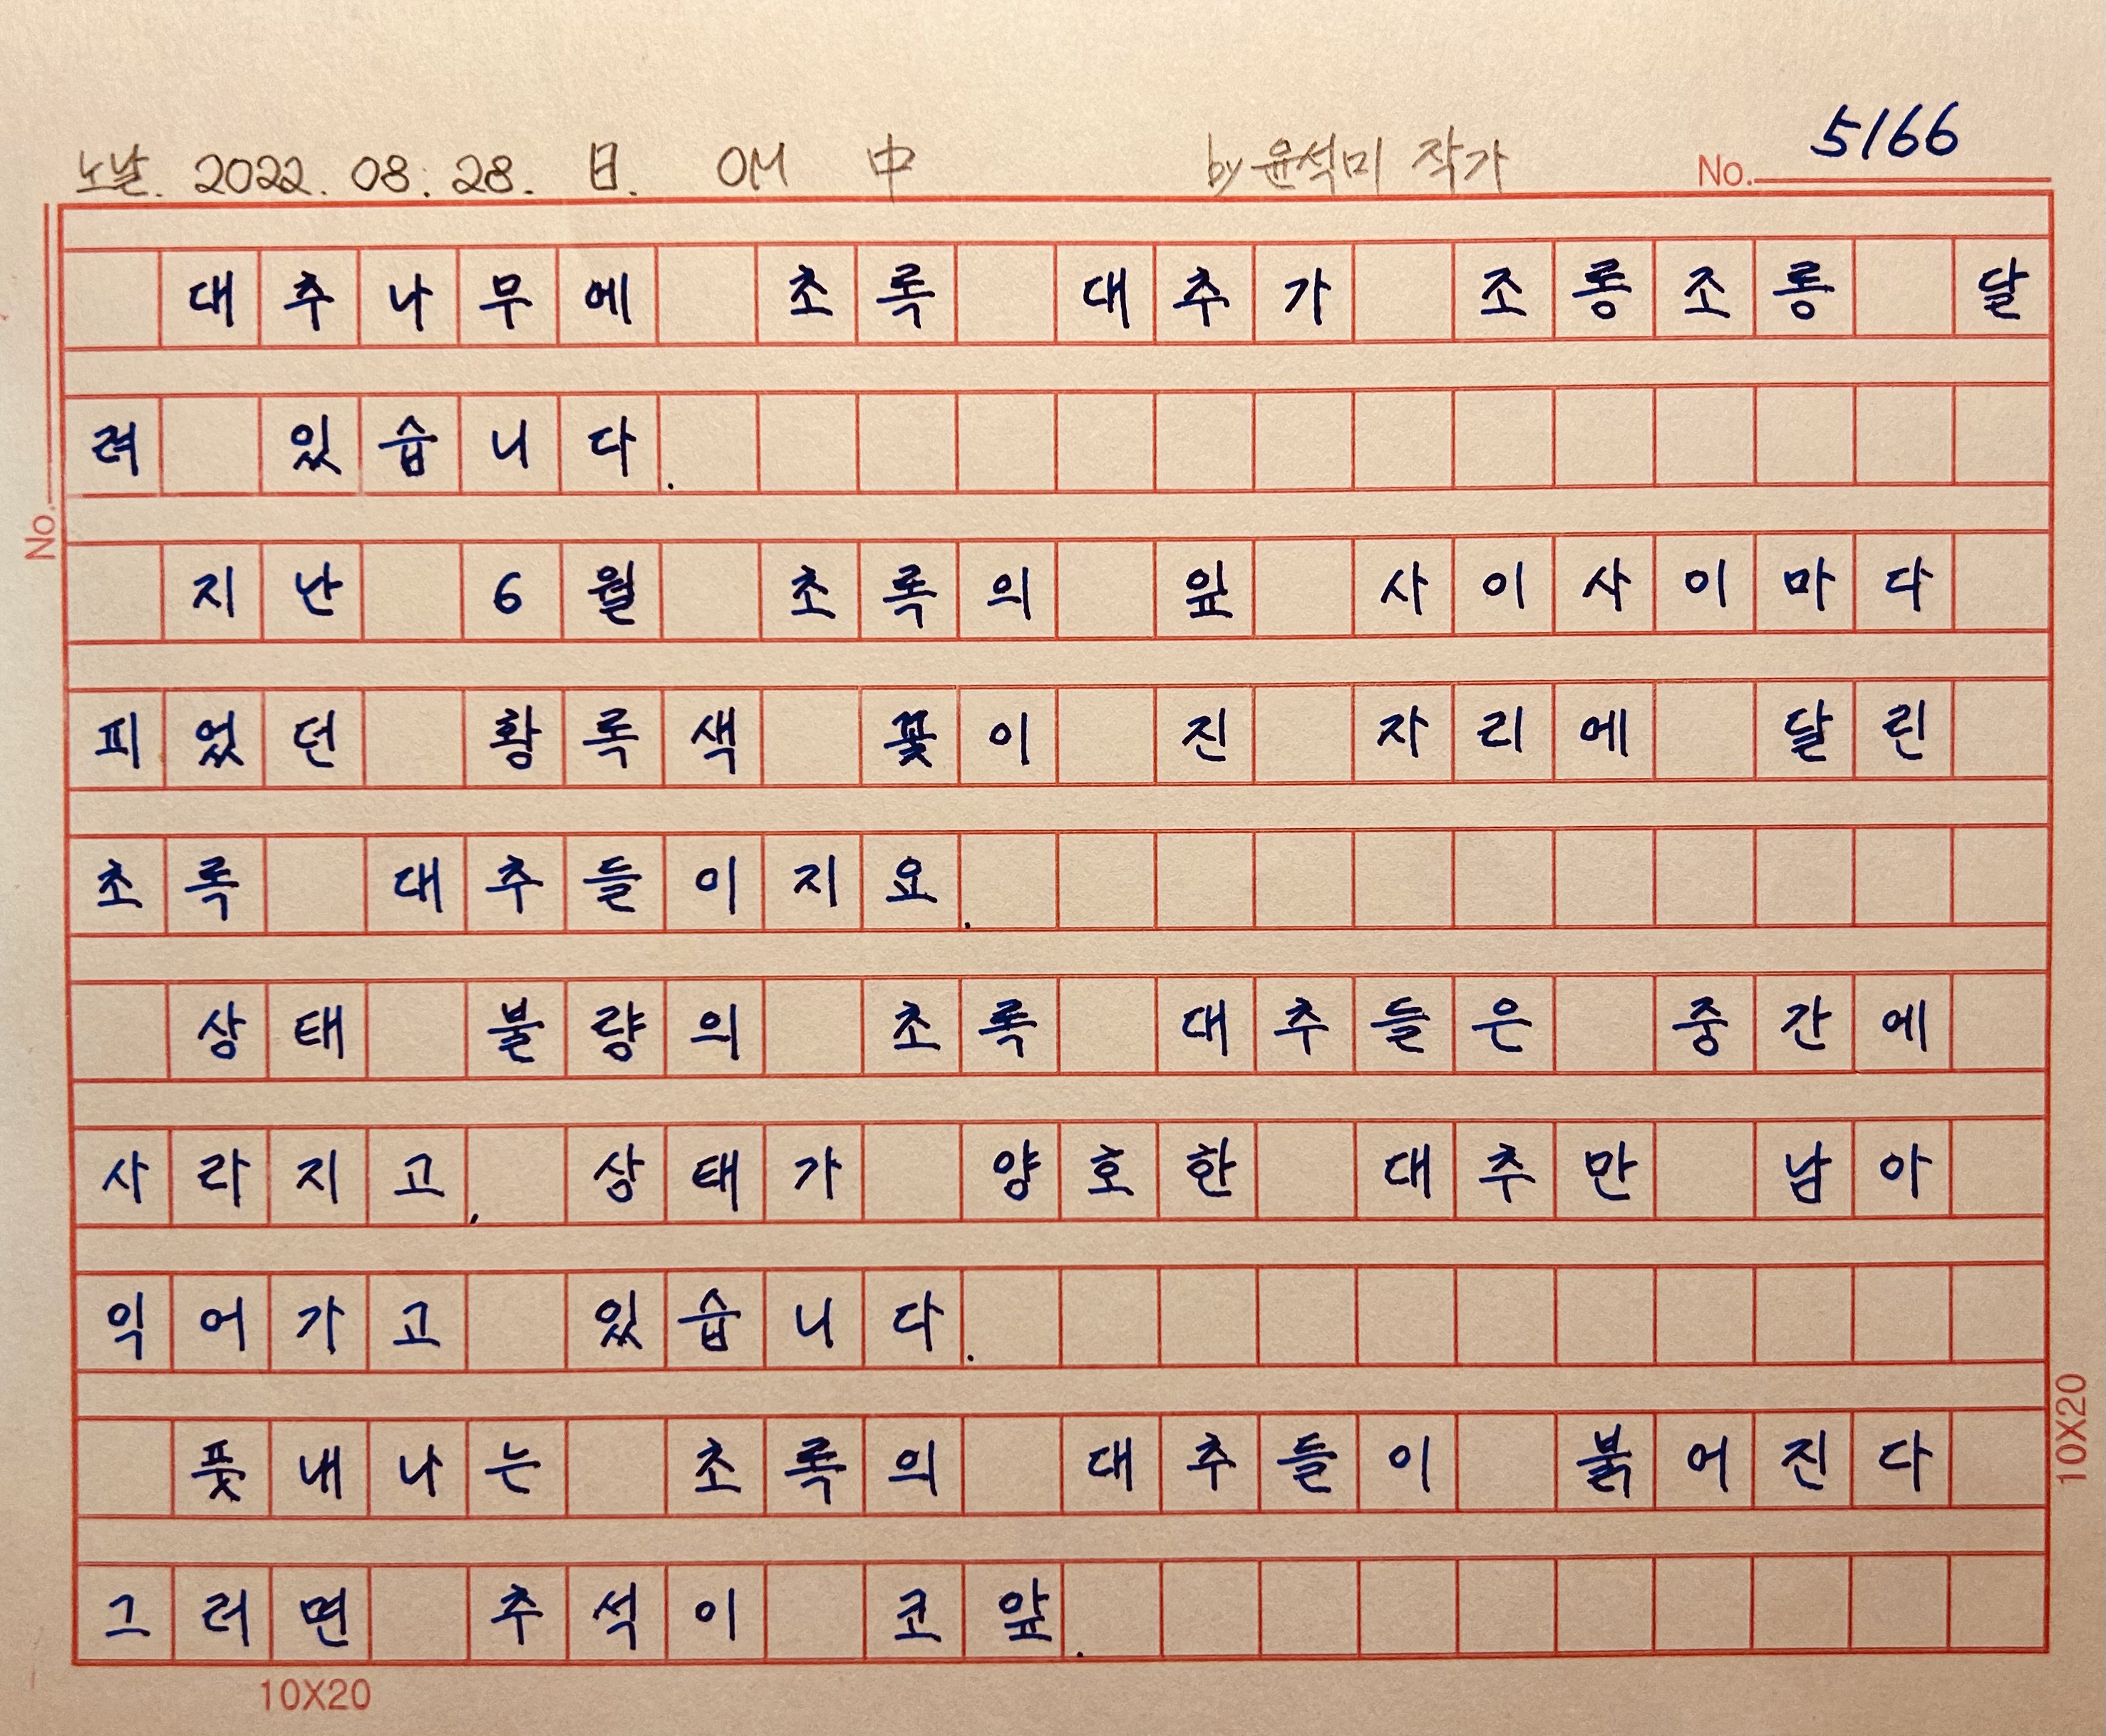 노날. 2022. 08. 28. 日. OM 中 by 윤석미 작가 No. 5166
대추나무에 초록 대추가 조롱조롱 달
려 있습니다.
지난 6월 초록의 잎 사이사이마다
피었던 황록색 꽃이 진 자리에 달린
초록 대추들이지요.
상태 불량의 초록 대추들은 중간에
사라지고, 상태가 양호한 대추만 남아
익어가고 있습니다.
풋내나는 초록의 대추들이 붉어진다
그러면 추석이 코앞.
No.
10X20
10X20